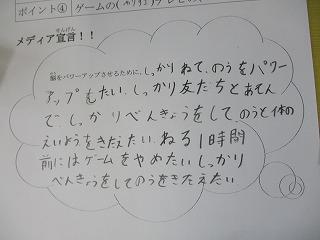 ポイント④ ゲームの(
メディア宣言！！
せんげん
脳をパワーアップさせるために、しっかりねて、のうをパワー
アップもたい。しっかり友だちとあそん
で しかりべんきょうをして、のうと体の
えいようをきたえたい。ねる1時間
前にはゲームをやめたいしっかり
べんきょうをしてのうをきたえたい